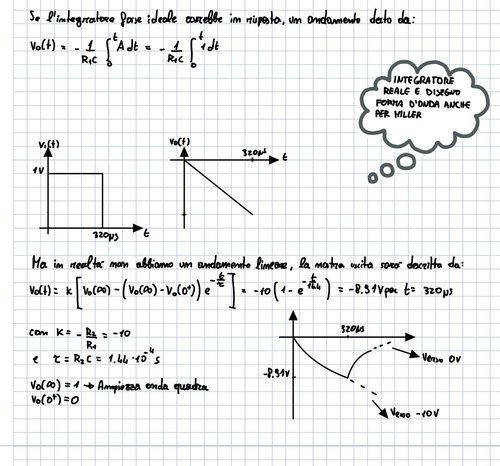 Se l'integratore fosse ideale avrebbe in risposta, un andamento dato da:
Vo(t) = - 1/R1C ∫₀ᵗ A dt = - 1/R1C ∫₀ᵗ 1 dt
INTEGRATORE
REALE E DISEGNO
FORMA D'ONDA ANCHE
PER MILLER
V₁(t)
1V
320µs
t
Vo(t)
320µs
t
Ma in realtà non abbiamo un andamento lineare, la nostra uscita sarà descritta da:
Vo(t) = K [Vo(∞) - (Vo(∞) - Vo(0⁺)) e^(-t/τ)] = -10 (1 - e^(-t/1.44)) = -8.91V per t = 320µs
con K = - R2/R1 = -10
e τ = R2C = 1.44·10⁻⁴ s
Vo(∞) = 1 → Ampiezza onda quadra
Vo(0⁺) = 0
320µs
verso 0V
-8.91V
Verso -10V